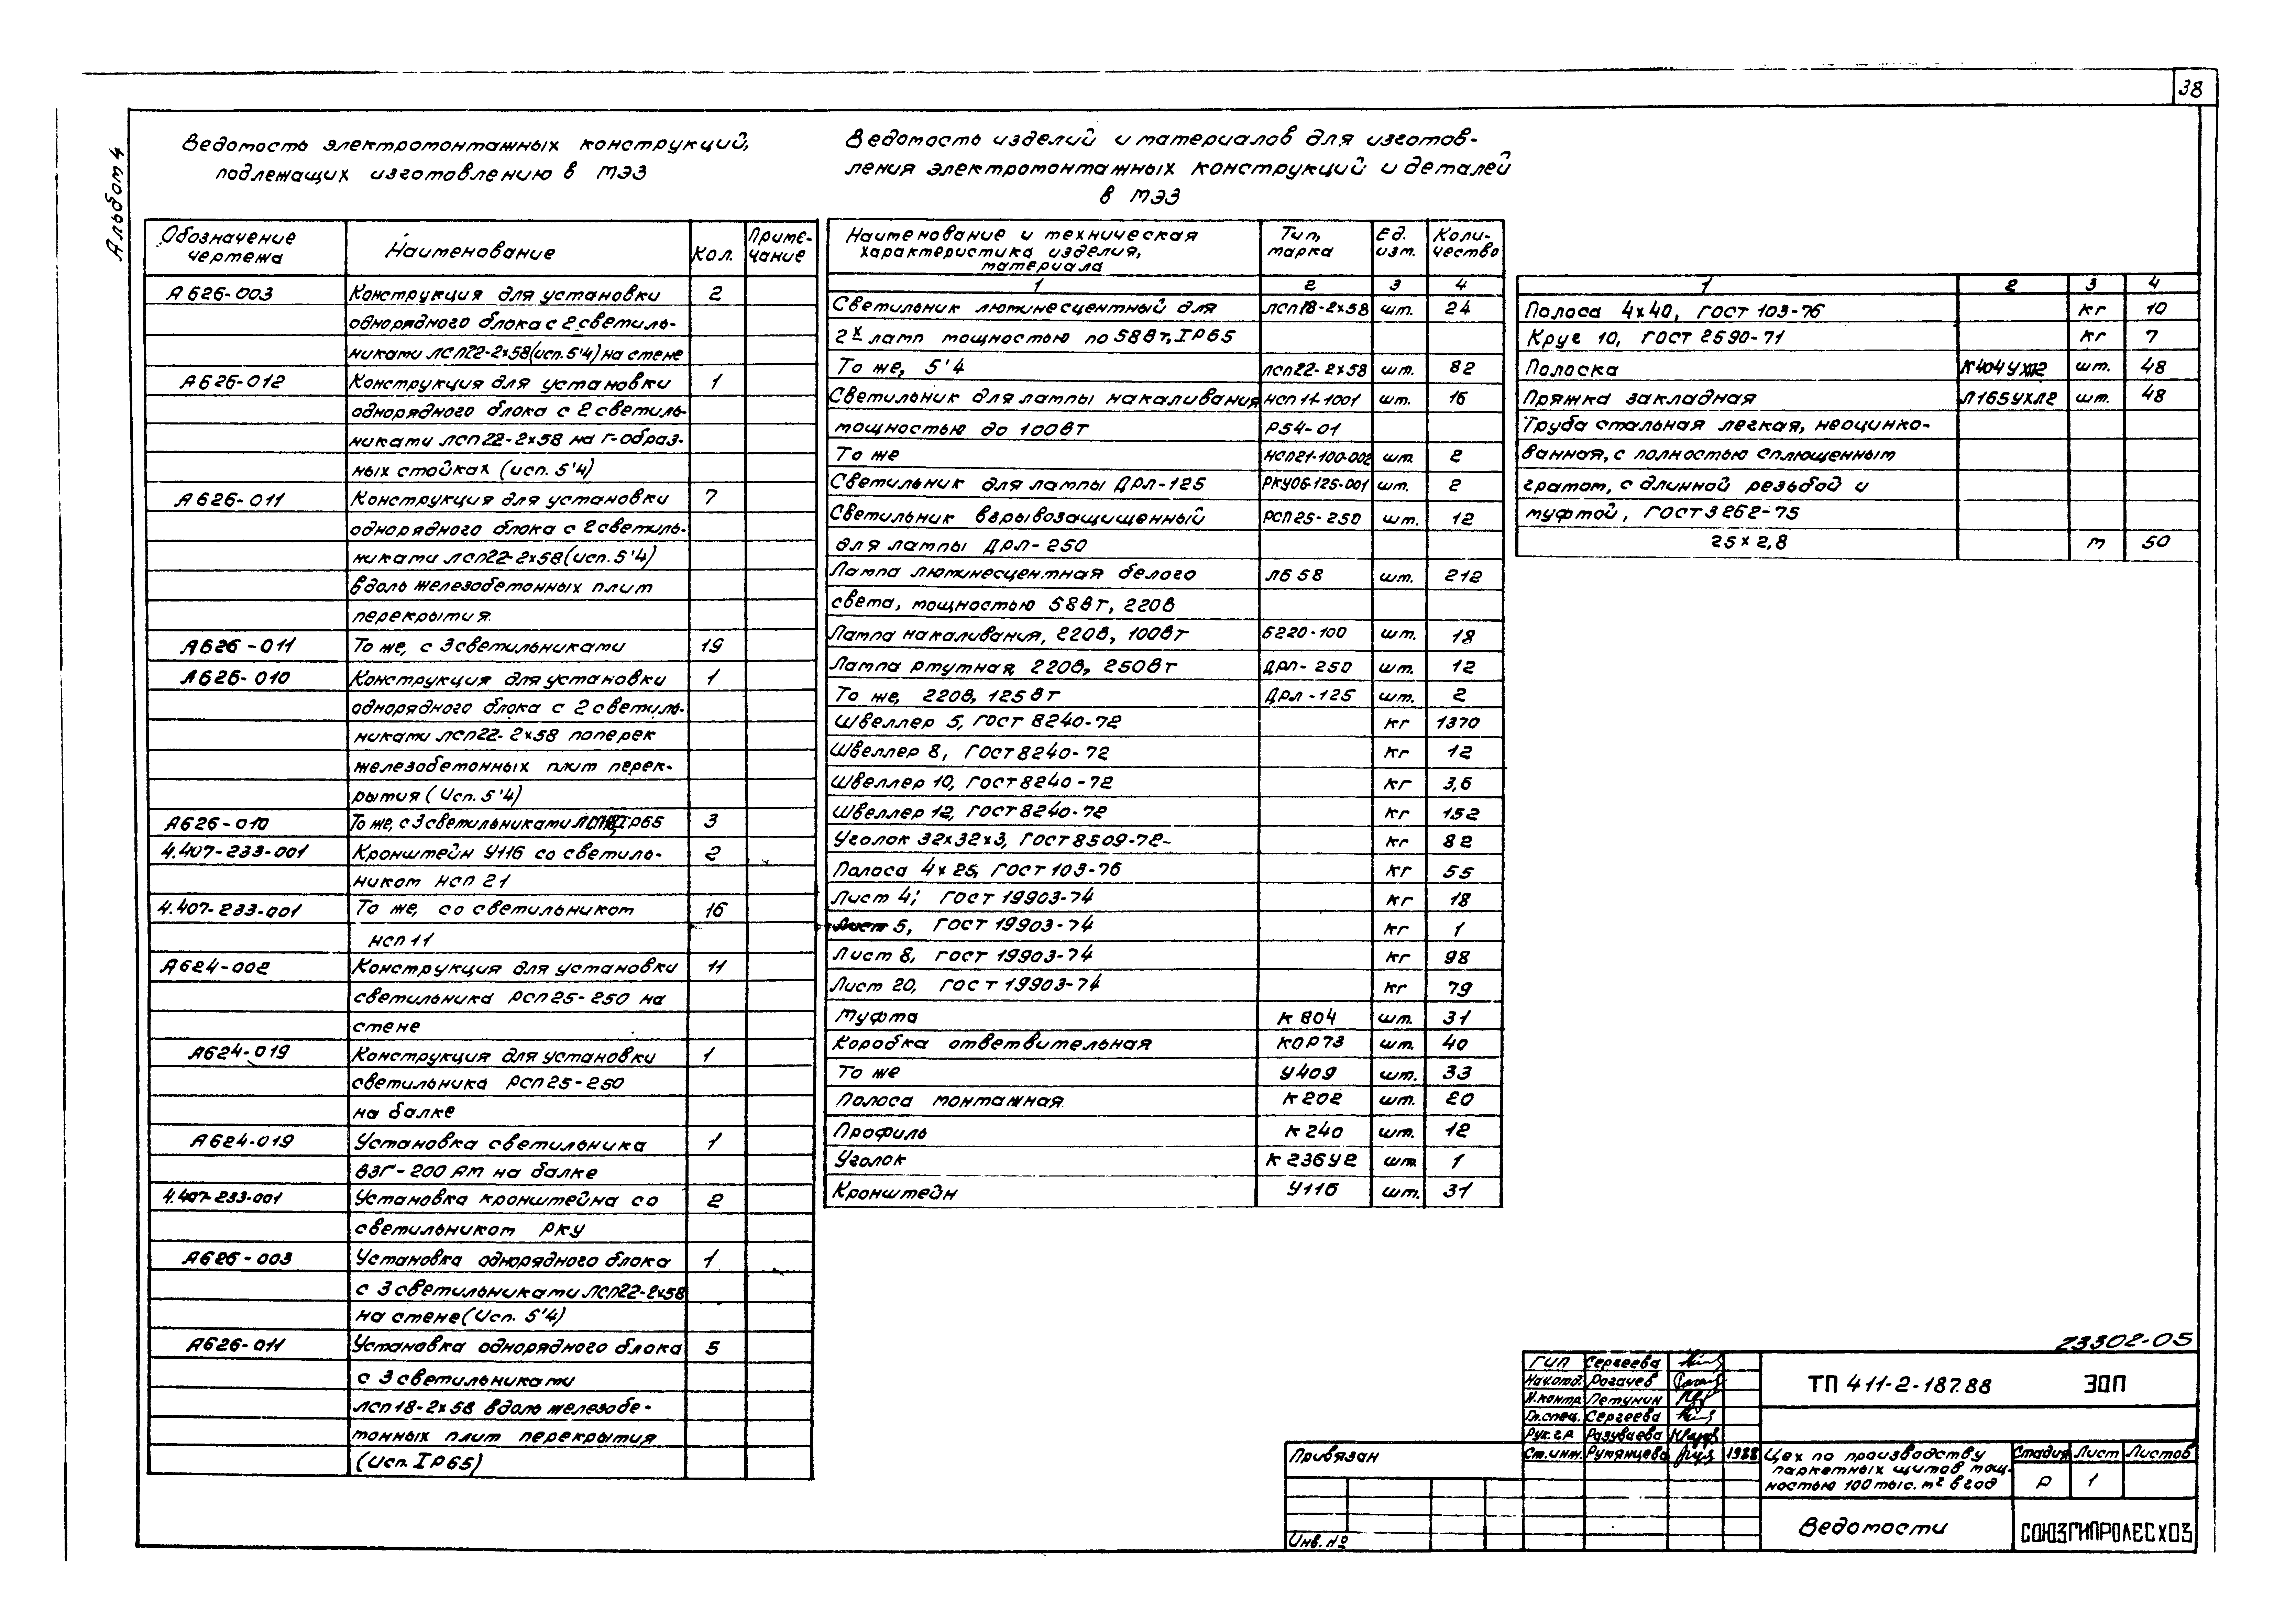 38
Альбом 4
Ведомость электромонтажных конструкций,
подлежащих изготовлению в МЭЗ
Обозначение чертежа | Наименование | Кол. | Приме-чание
А626-003 | Конструкция для установки | 2
однорядного блока с 2 светиль-
никами ЛСП22-2х58 (исп. 5'4) на стене
А626-012 | Конструкция для установки | 1
однорядного блока с 2 светиль-
никами ЛСП 22-2х58 на Г-образ-
ных стойках (исп. 5'4)
А626-011 | Конструкция для установки | 7
однорядного блока с 2 светиль-
никами ЛСП22-2х58 (исп. 5'4)
вдоль железобетонных плит
перекрытия
А626-011 | То же, с 3 светильниками | 19
А626-010 | Конструкция для установки | 1
однорядного блока с 2 светиль-
никами ЛСП22-2х58 поперек
железобетонных плит перек-
рытия (Исп. 5'4)
А626-010 | То же, с 3 светильниками IP65 | 3
4.407-233-001 | Кронштейн У116 со светиль- | 2
ником НСП 21
4.407-233-001 | То же, со светильником | 16
НСП 11
А624-002 | Конструкция для установки | 11
светильника РСП 25-250 на
стене
А624-019 | Конструкция для установки | 1
светильника РСП 25-250
на балке
А624-019 | Установка светильника | 1
ВЗГ-200 АМ на балке
4.407-233-001 | Установка кронштейна со | 2
светильником РКУ
А626-003 | Установка однорядного блока | 1
с 3 светильниками ЛСП22-2х58
на стене (Исп. 5'4)
А626-011 | Установка однорядного блока | 5
с 3 светильниками
ЛСП 18-2х58 вдоль железобе-
тонных плит перекрытия
(Исп. IP65)
Ведомость изделий и материалов для изготов-
ления электромонтажных конструкций и деталей
в МЭЗ
Наименование и техническая характеристика изделия, материала | Тип, марка | Ед. изм. | Коли-чество
1 | 2 | 3 | 4
Светильник люминесцентный для | ЛСП18-2х58 | шт. | 24
2х ламп мощностью по 58Вт, IP65
То же, 5'4 | ЛСП22-2х58 | шт. | 82
Светильник для лампы накаливания | НСП 11-1001 | шт. | 16
мощностью до 100Вт | Р54-01
То же | НСП21-100-002 | шт. | 2
Светильник для лампы ДРЛ-125 | РКУ06-125-001 | шт. | 2
Светильник взрывозащищенный | РСП25-250 | шт. | 12
для лампы ДРЛ-250
Лампа люминесцентная белого | ЛБ 58 | шт. | 212
света, мощностью 58Вт, 220В
Лампа накаливания, 220В, 100Вт | Б220-100 | шт. | 18
Лампа ртутная, 220В, 250Вт | ДРЛ-250 | шт. | 12
То же, 220В, 125Вт | ДРЛ-125 | шт. | 2
Швеллер 5, ГОСТ 8240-72 | кг | 1370
Швеллер 8, ГОСТ 8240-72 | кг | 12
Швеллер 10, ГОСТ 8240-72 | кг | 3,6
Швеллер 12, ГОСТ 8240-72 | кг | 152
Уголок 32х32х3, ГОСТ 8509-72- | кг | 82
Полоса 4х25, ГОСТ 103-76 | кг | 55
Лист 4; ГОСТ 19903-74 | кг | 18
Лист 5, ГОСТ 19903-74 | кг | 1
Лист 8, ГОСТ 19903-74 | кг | 98
Лист 20, ГОСТ 19903-74 | кг | 79
Муфта | К 804 | шт. | 31
Коробка ответвительная | КОР73 | шт. | 40
То же | У409 | шт. | 33
Полоса монтажная | К 202 | шт. | 20
Профиль | К 240 | шт. | 12
Уголок | К 236У2 | шт. | 1
Кронштейн | У116 | шт. | 31
1 | 2 | 3 | 4
Полоса 4х40, ГОСТ 103-76 | кг | 10
Круг 10, ГОСТ 2590-71 | кг | 7
Полоска | К404УХЛ2 | шт. | 48
Пряжка закладная | Л165УХЛ2 | шт. | 48
Труба стальная легкая, неоцинко-
ванная, с полностью сплющенным
гратом, с длинной резьбой и
муфтой, ГОСТ 3262-75
25 х 2,8 | м | 50
23302-05
ГИП Сергеева
Нач.отд. Рогачев
Н.контр. Петунин
Гл.спец. Сергеева
Рук.гр. Разуваева
Ст.инж. Румянцева 1988
ТП 411-2-187.88 ЭОП
Цех по производству
паркетных щитов мощ-
ностью 100 тыс. м² в год
Стадия Лист Листов
Р 1
Ведомости
СОЮЗГИПРОЛЕСХОЗ
Привязан
Инв. №